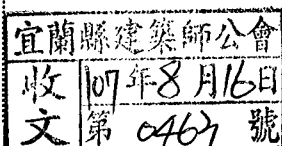 宜蘭縣建築師公會
收 107年8月16日
文 第 0463 號